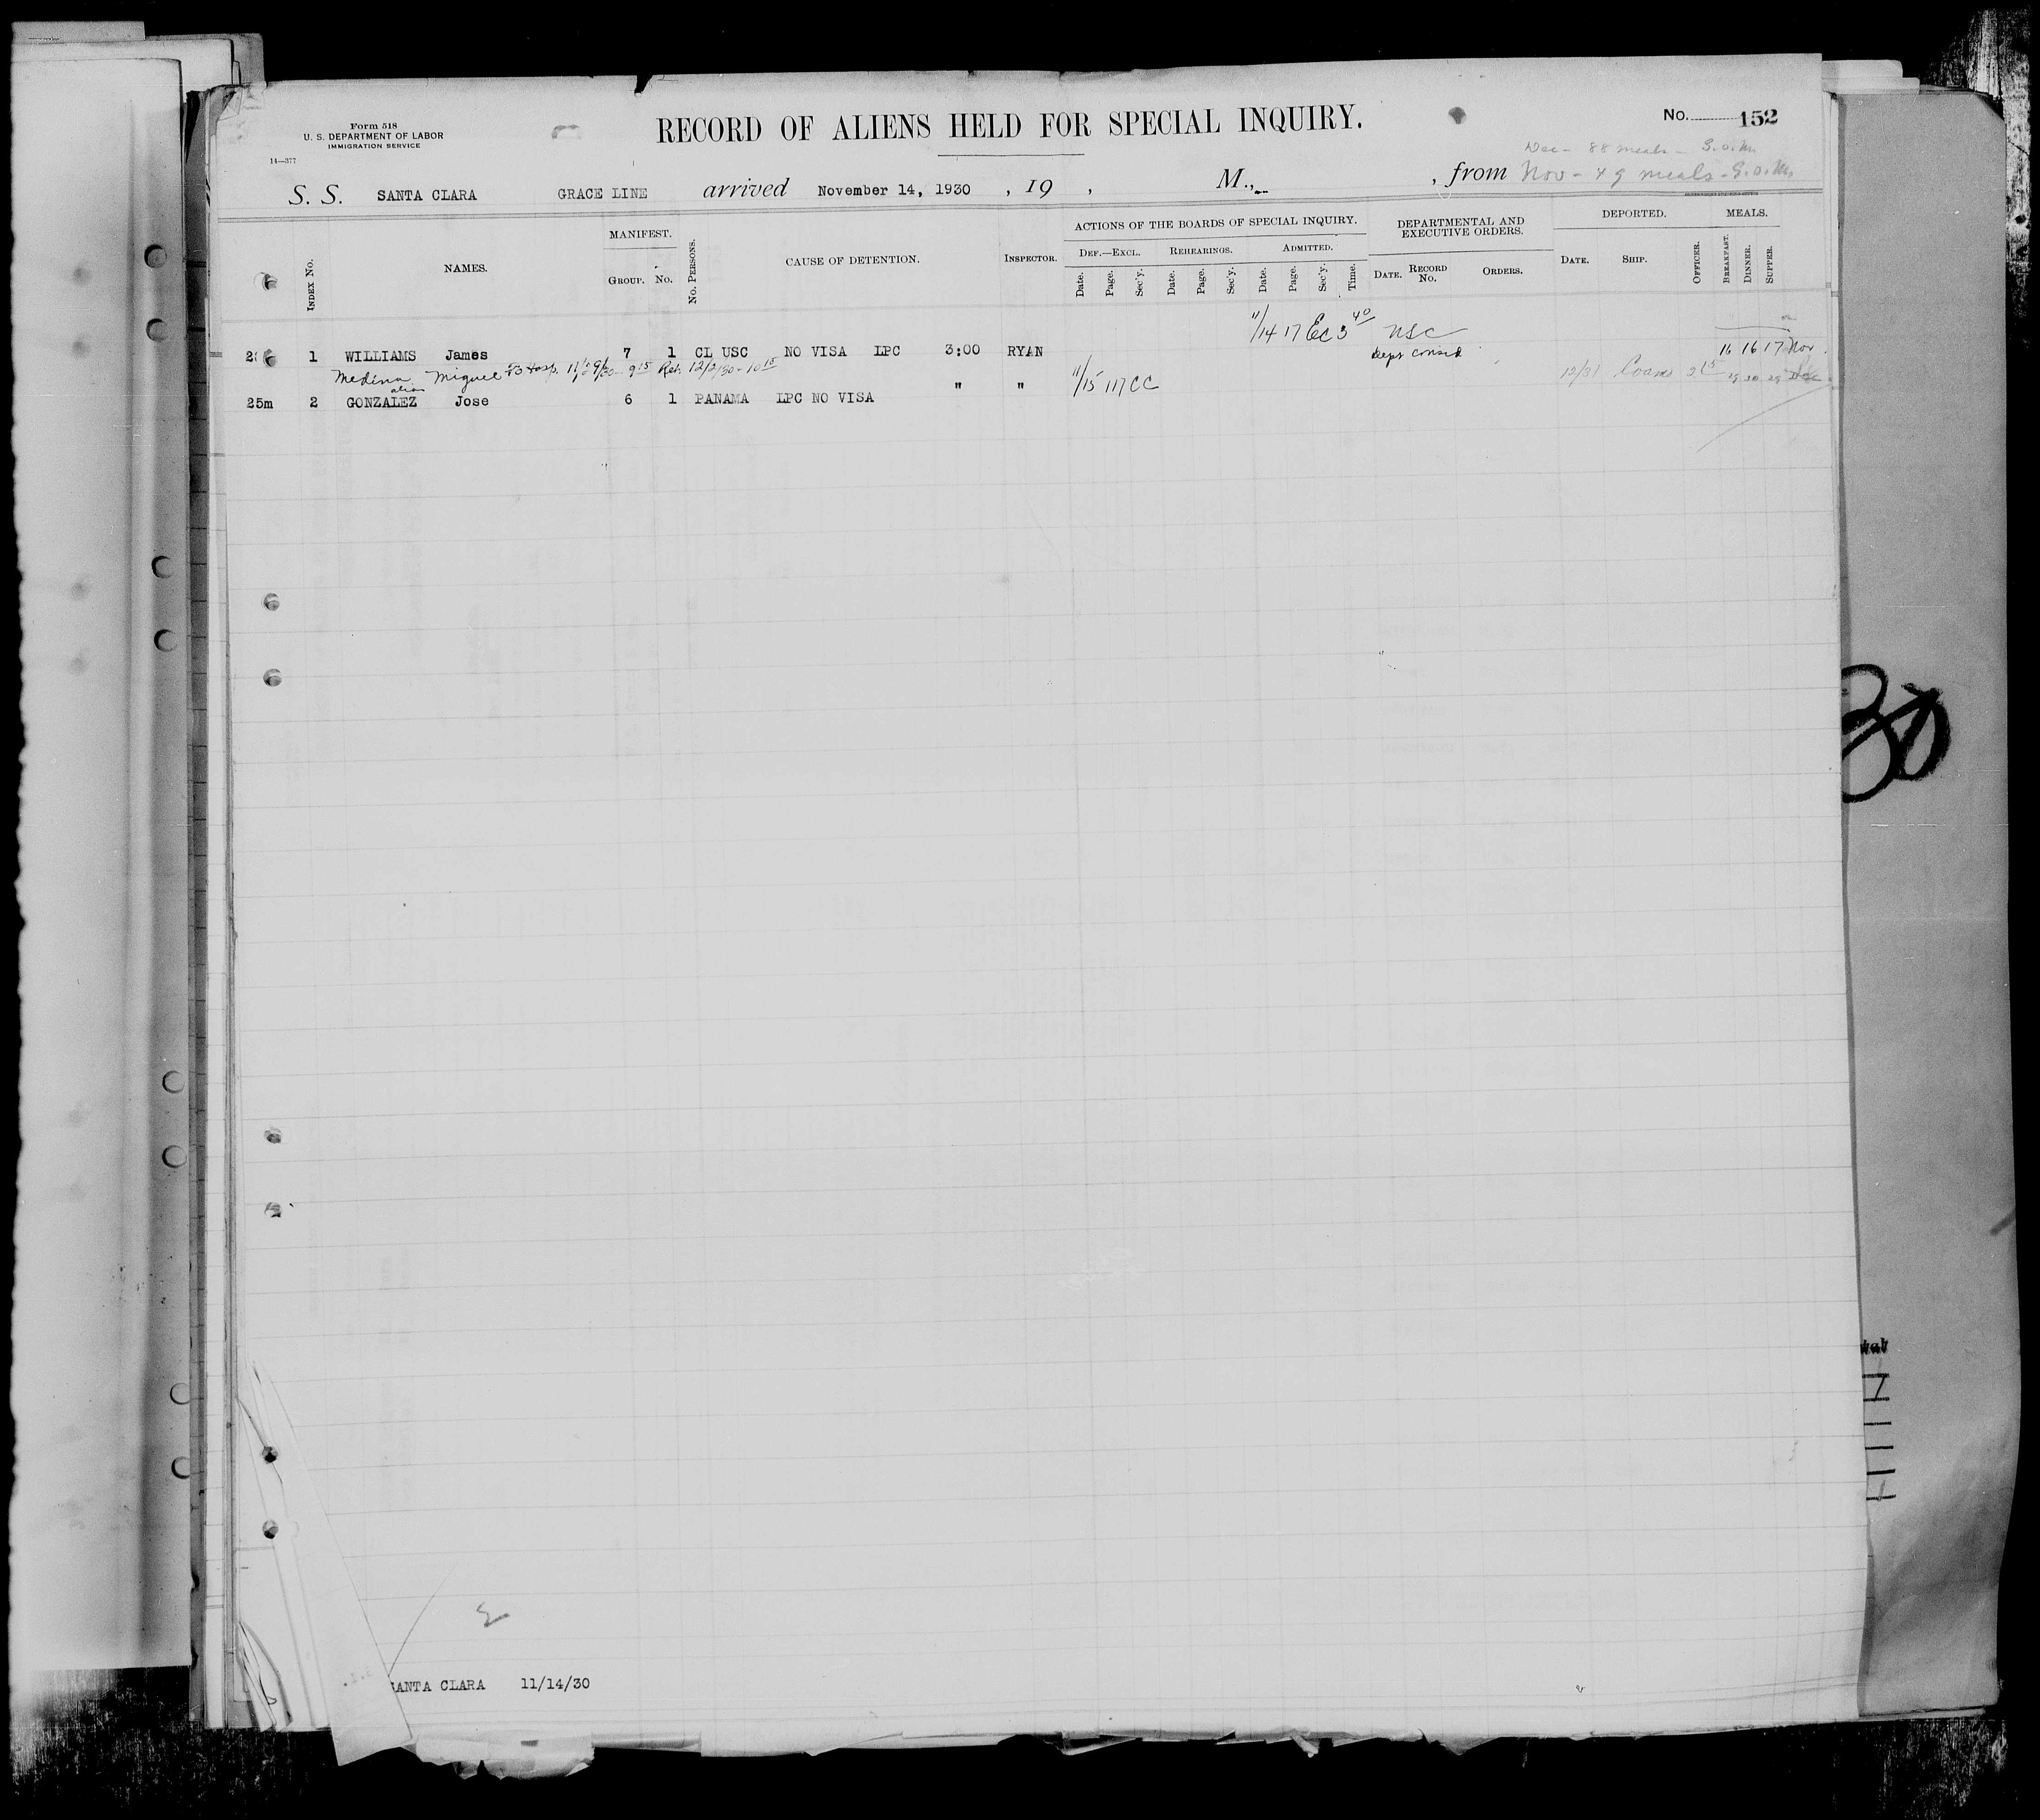 Form 518
U. S. DEPARTMENT OF LABOR
IMMIGRATION SERVICE
14—377
RECORD OF ALIENS HELD FOR SPECIAL INQUIRY.
No. 152
Dec - 88 meals - S.O.M.
S. S. SANTA CLARA GRACE LINE arrived November 14, 1930 , 19 , M., , from Nov - 49 meals - S.O.M.
INDEX No. NAMES. MANIFEST. GROUP. No. No. PERSONS. CAUSE OF DETENTION. INSPECTOR.
ACTIONS OF THE BOARDS OF SPECIAL INQUIRY.
DEF.—EXCL. REHEARINGS. ADMITTED.
Date. Page. Sec'y. Date. Page. Sec'y. Date. Page. Sec'y. Time.
DEPARTMENTAL AND EXECUTIVE ORDERS.
DATE. RECORD No. ORDERS.
DEPORTED.
DATE. SHIP. OFFICER.
MEALS.
BREAKFAST. DINNER. SUPPER.
11/14 17 EC 3 40 USC
1 WILLIAMS James 7 1 CL USC NO VISA LPC 3:00 RYAN
16 16 17 Nov
Medina Miguel To Hosp. Ret. 12/2/30 - 10 15
alias
" " 11/15 117 CC 12/31 2 15 29 30 29 Dec
25m 2 GONZALEZ Jose 6 1 PANAMA LPC NO VISA
SANTA CLARA 11/14/30